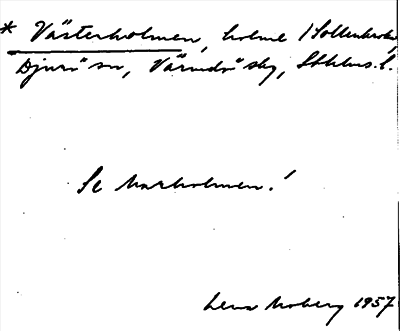 * Västerholmen, holme i Sollenkroka,
Djurö sn, Värmdö skg, Sthlms l.
Se Norholmen!
Lena Moberg 1957